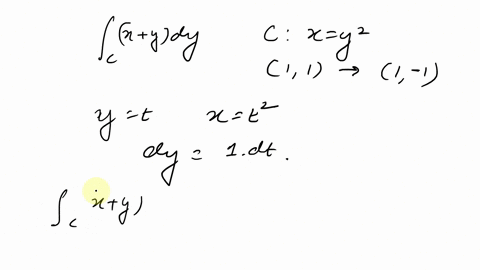 ∫_C (x+y) dy    C : x = y²
(1, 1) → (1, -1)
y = t    x = t²
dy = 1.dt.
∫_C x+y)